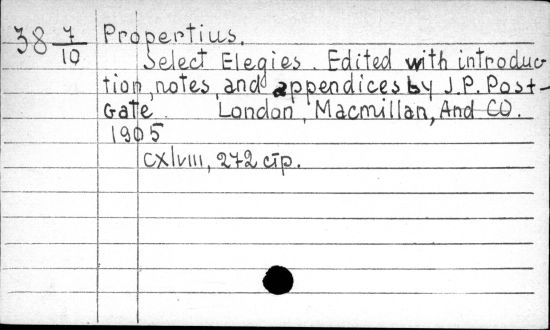 38 7/10 Propertius.
Select Elegies. Edited with introduc
tion, notes, and appendices by J.P. Post-
Gate. London, Macmillan, And CO.
1905
CXlvııı, 272 стр.